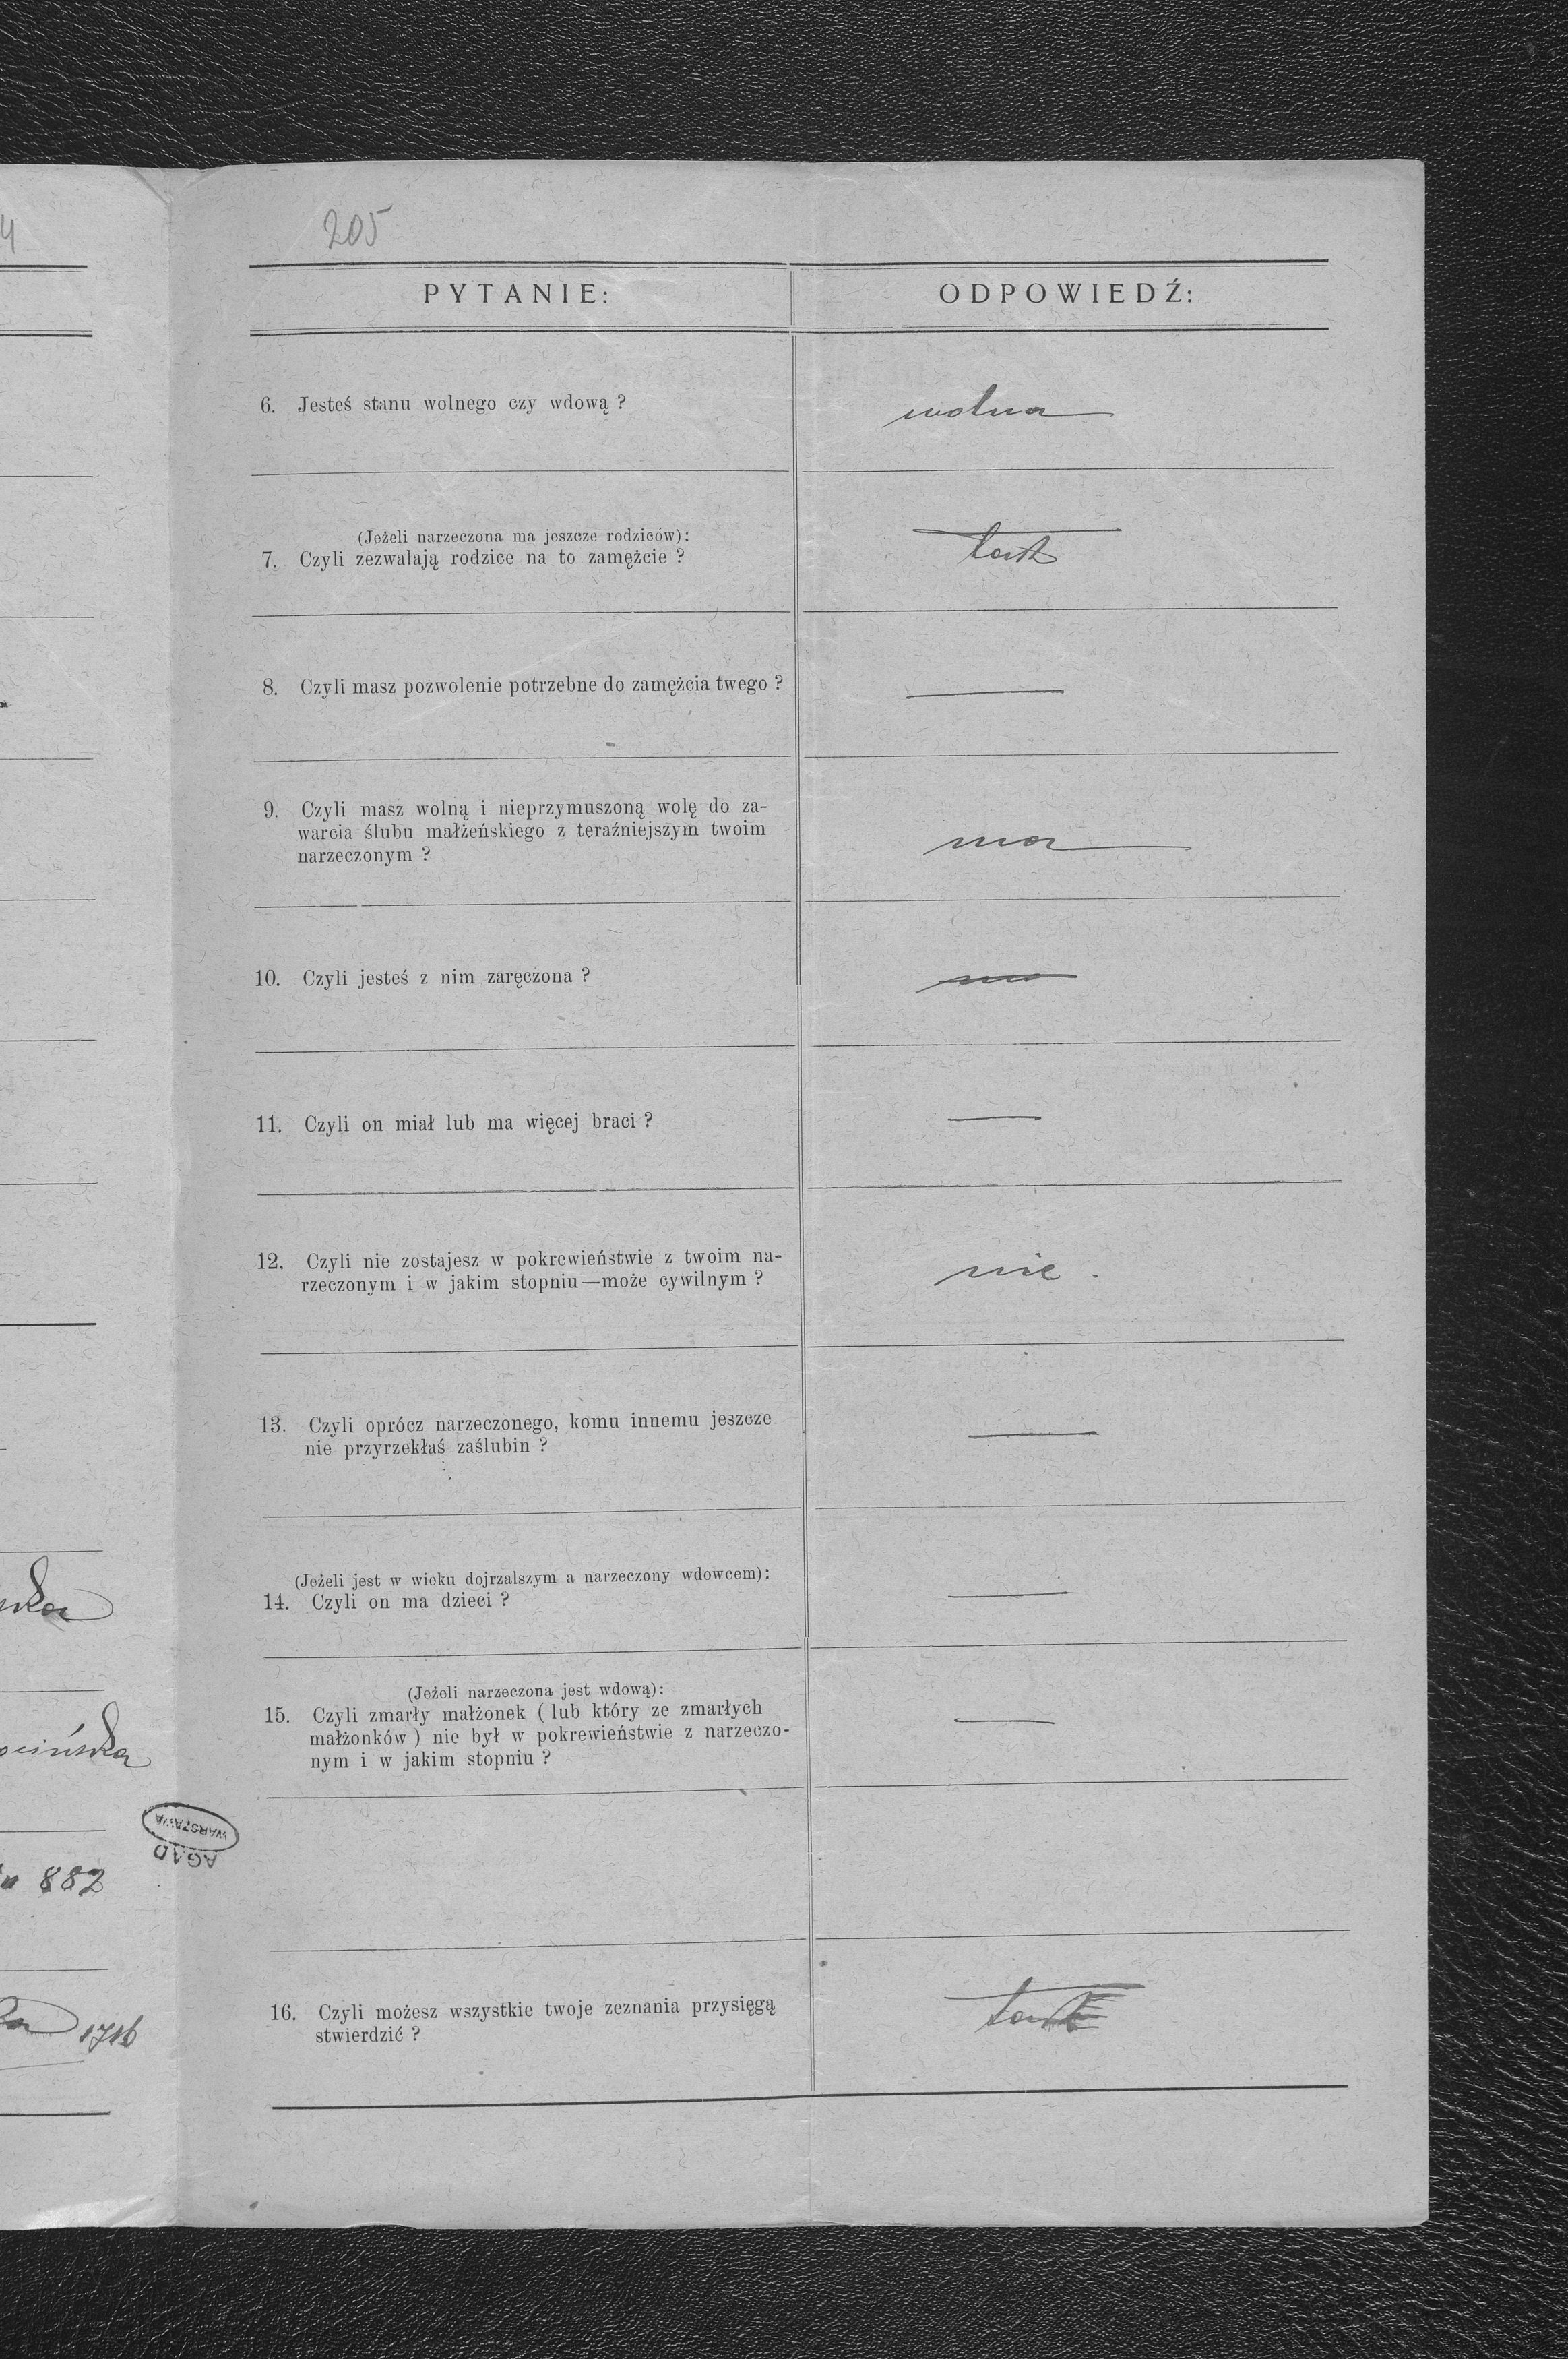 4
205
PYTANIE:
ODPOWIEDŹ:
6. Jesteś stanu wolnego czy wdową ?
wolna
(Jeżeli narzeczona ma jeszcze rodziców):
7. Czyli zezwalają rodzice na to zamężcie ?
tak
8. Czyli masz pozwolenie potrzebne do zamężcia twego ?
9. Czyli masz wolną i nieprzymuszoną wolę do za-
warcia ślubu małżeńskiego z teraźniejszym twoim
narzeczonym ?
ma
10. Czyli jesteś z nim zaręczona ?
11. Czyli on miał lub ma więcej braci ?
12. Czyli nie zostajesz w pokrewieństwie z twoim na-
rzeczonym i w jakim stopniu—może cywilnym ?
nie.
13. Czyli oprócz narzeczonego, komu innemu jeszcze
nie przyrzekłaś zaślubin ?
(Jeżeli jest w wieku dojrzalszym a narzeczony wdowcem):
14. Czyli on ma dzieci ?
(Jeżeli narzeczona jest wdową):
15. Czyli zmarły małżonek ( lub który ze zmarłych
małżonków ) nie był w pokrewieństwie z narzeczo-
nym i w jakim stopniu ?
WARSZAWA
AGAD
882
16. Czyli możesz wszystkie twoje zeznania przysięgą
stwierdzić ?
tak